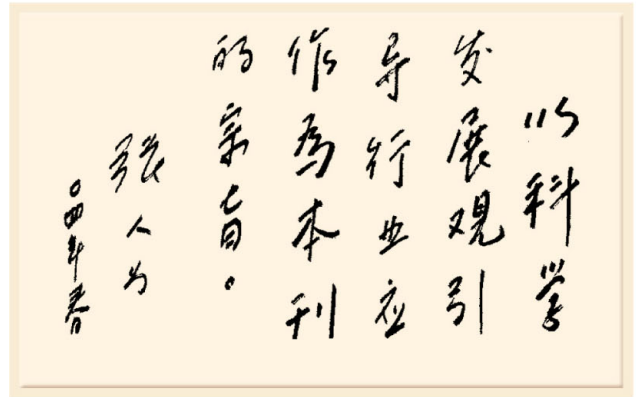 以科学
发展观引
导行业应
作為本刊
的宗旨。
張人为
〇四年春